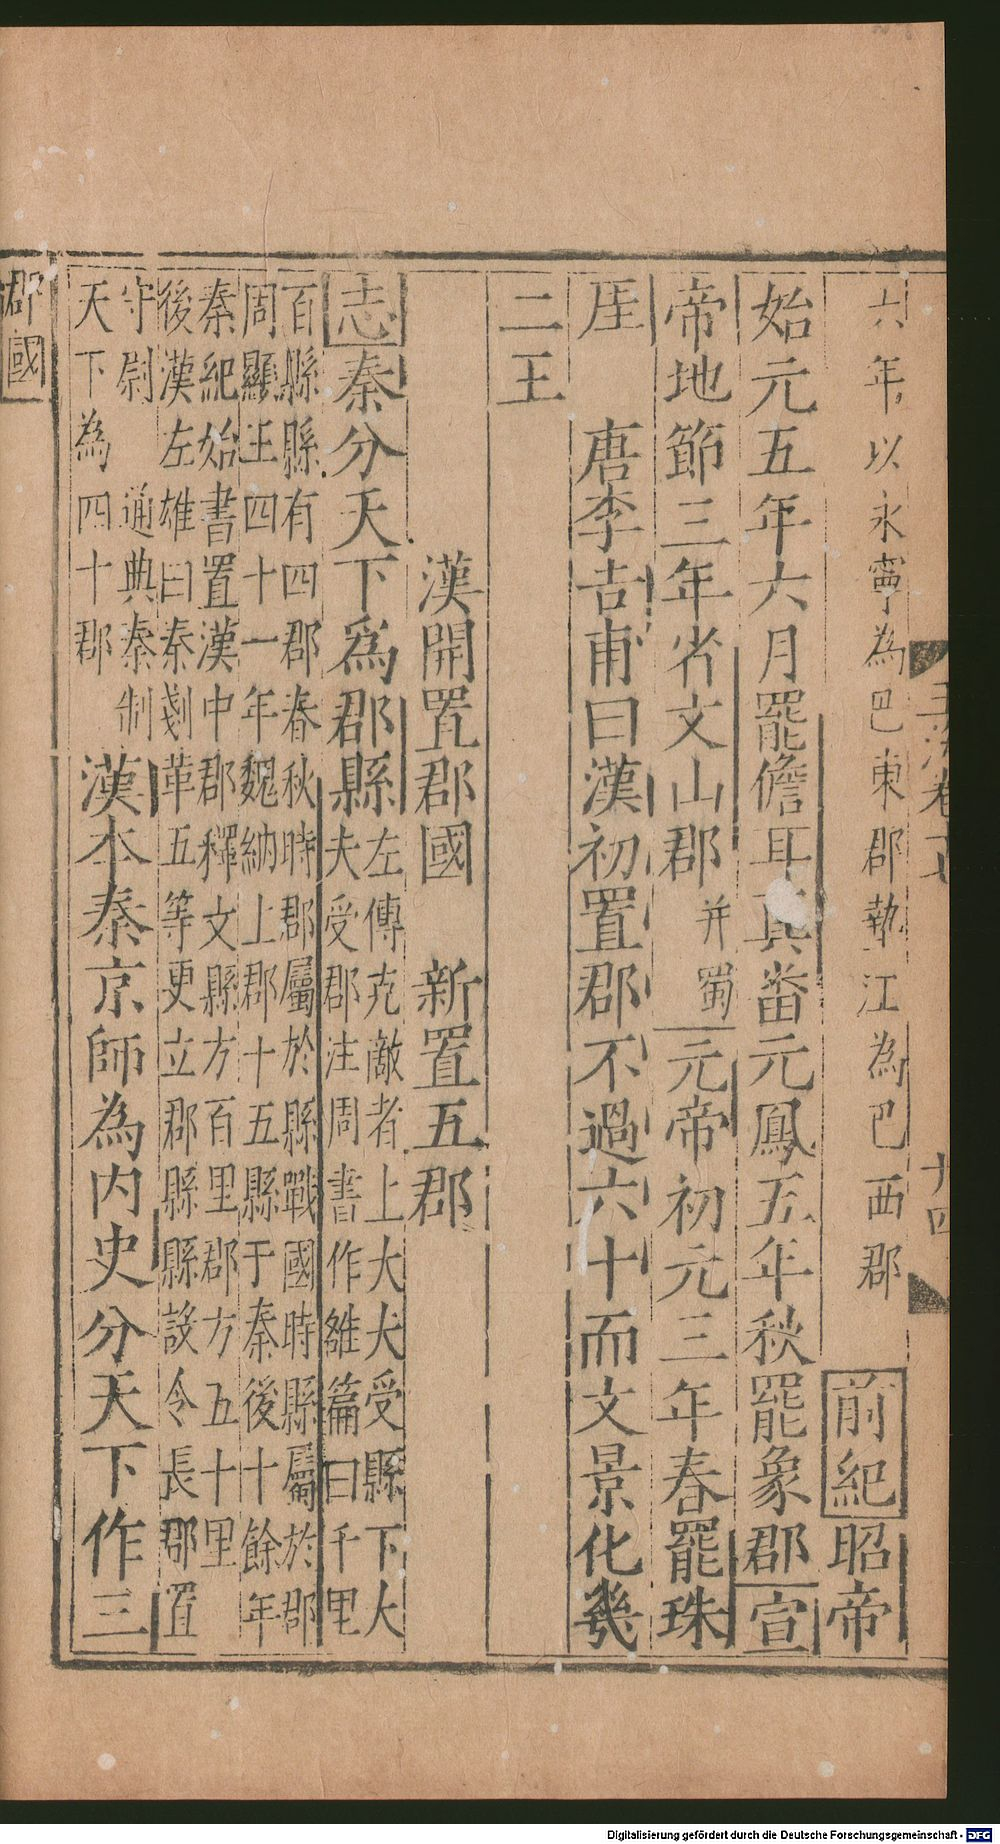 六年以永寧為巴東郡墊江為巴西郡 前紀昭帝
始元五年六月罷儋耳真番元鳳五年秋罷象郡宣
帝地節三年省文山郡并蜀元帝初元三年春罷珠
厓 唐李吉甫曰漢初置郡不過六十而文景化幾
二王
漢開置郡國 新置五郡
志秦分天下為郡縣左傳克敵者上大夫受縣下大
夫受郡注周書作雒篇曰千里
百縣縣有四郡春秋時郡屬於縣戰國時縣屬於郡
周顯王四十一年魏納上郡十五縣于秦後十餘年
秦紀始書置漢中郡釋文縣方百里郡方五十里
後漢左雄曰秦剗革五等更立郡縣縣設令長郡置
守尉 通典秦制
天下為四十郡 漢本秦京師為內史分天下作三
郡國
十四
Digitalisierung gefördert durch die Deutsche Forschungsgemeinschaft - DFG